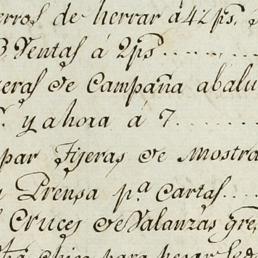 erros de herrar á 42 ps,
3 Ventas á 2 ps
geras de Campaña abalu
y ahora á 7
par Tijeras de Mostra
Prensa pª Cartas
Cruces de Valanzas gre
chica para pesar Seda